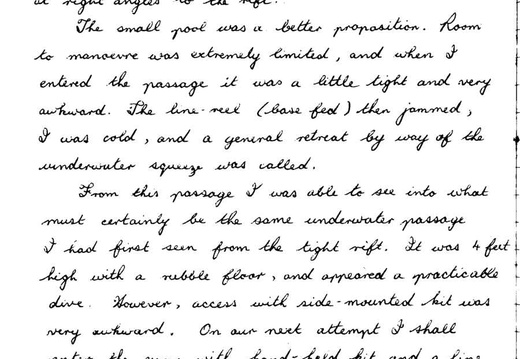 at right angles to the rift.
The small pool was a better proposition. Room
to manoevre was extremely limited, and when I
entered the passage it was a little tight and very
awkward. The line-reel (base fed) then jammed,
I was cold, and a general retreat by way of the
underwater squeeze was called.
From this passage I was able to see into what
must certainly be the same underwater passage
I had first seen from the tight rift. It was 4 feet
high with a rubble floor, and appeared a practicable
dive. However, access with side-mounted kit was
very awkward. On our next attempt I shall
enter the with hand-held kit and a line